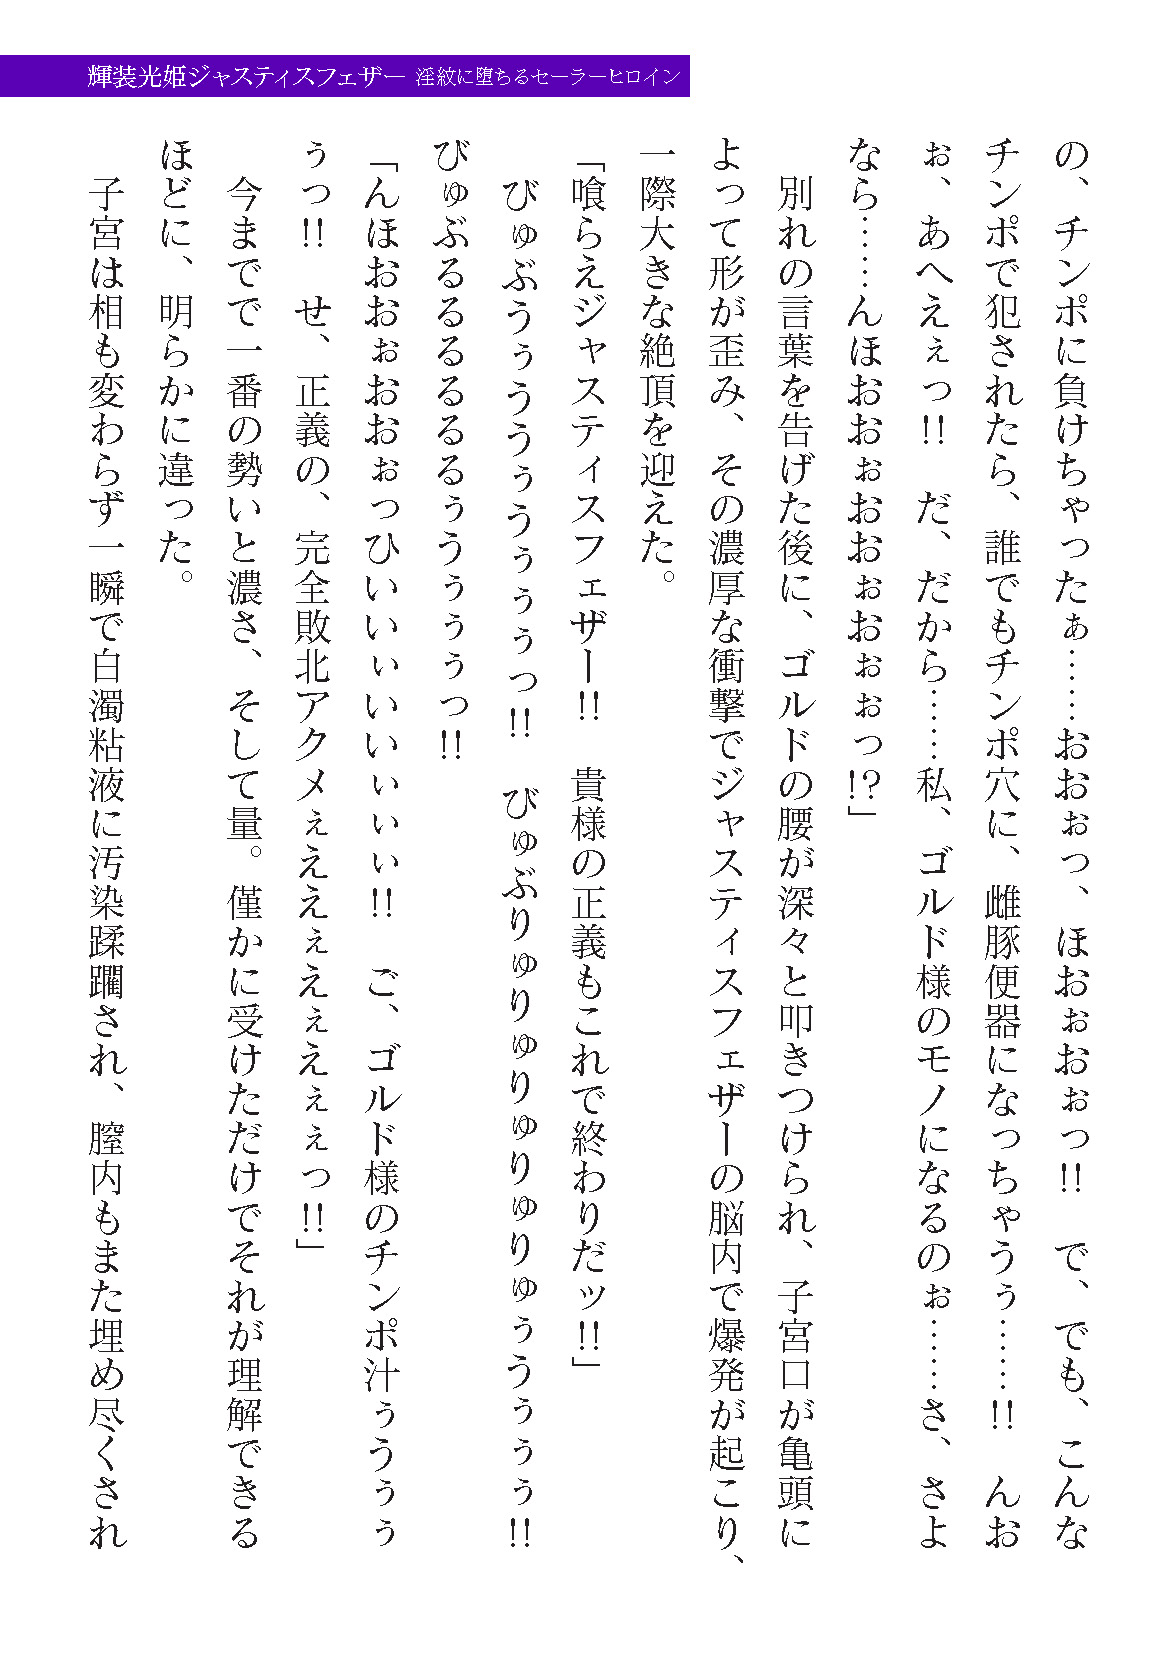 輝装光姫ジャスティスフェザー 淫紋に堕ちるセーラーヒロイン
の、チンポに負けちゃったぁ……おおぉっ、ほおぉおぉっ!!　で、でも、こんな
チンポで犯されたら、誰でもチンポ穴に、雌豚便器になっちゃうぅ……!!　んお
ぉ、あへえぇっ!!　だ、だから……私、ゴルド様のモノになるのぉ……さ、さよ
なら……んほおおぉおおぉおぉぉっ!?」
　別れの言葉を告げた後に、ゴルドの腰が深々と叩きつけられ、子宮口が亀頭に
よって形が歪み、その濃厚な衝撃でジャスティスフェザーの脳内で爆発が起こり、
一際大きな絶頂を迎えた。
「喰らえジャスティスフェザー!!　貴様の正義もこれで終わりだッ!!」
　びゅぶうぅううぅうぅぅぅっ!!　びゅぶりゅりゅりゅりゅりゅぅうぅぅぅ!!
びゅぶるるるるるぅうぅぅぅっ!!
「んほおおぉおおぉっひいいぃいいぃぃぃ!!　ご、ゴルド様のチンポ汁ぅうぅぅ
ぅっ!!　せ、正義の、完全敗北アクメぇええぇえぇえぇぇっ!!」
　今までで一番の勢いと濃さ、そして量。僅かに受けただけでそれが理解できる
ほどに、明らかに違った。
　子宮は相も変わらず一瞬で白濁粘液に汚染蹂躙され、膣内もまた埋め尽くされ